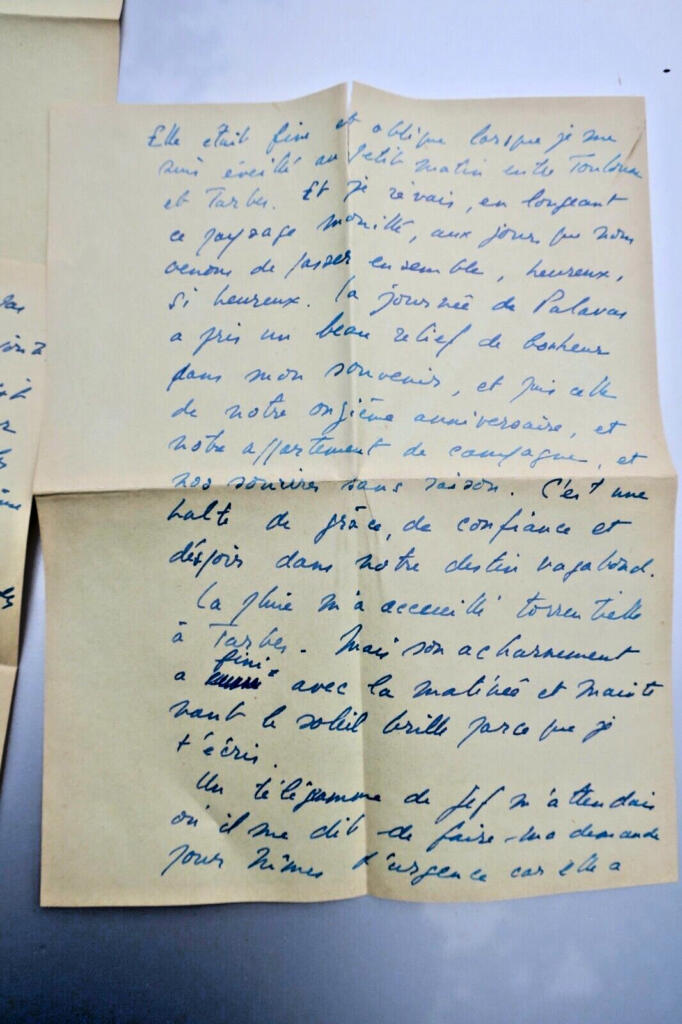 Elle était fine et oblique lorsque je me
suis éveillé au petit matin entre Toulouse
et Tarbes. Et je rêvais, en longeant
ce paysage mouillé, aux jours que nous
venons de passer ensemble, heureux,
si heureux. La journée de Palavas
a pris un beau relief de bonheur
dans mon souvenir, et puis celle
de notre onzième anniversaire, et
notre appartement de campagne, et
nos sourires sans raison. C'est une
halte de grâce, de confiance et
d'espoir dans notre destin vagabond.
La pluie m'a accueilli torrentielle
à Tarbes. Mais son acharnement
a fini avec la matinée et mainte
nant le soleil brille parce que je
t'écris.
Un télégramme de Jef m'attendais
où il me dit de faire ma demande
pour Nîmes d'urgence car elle a